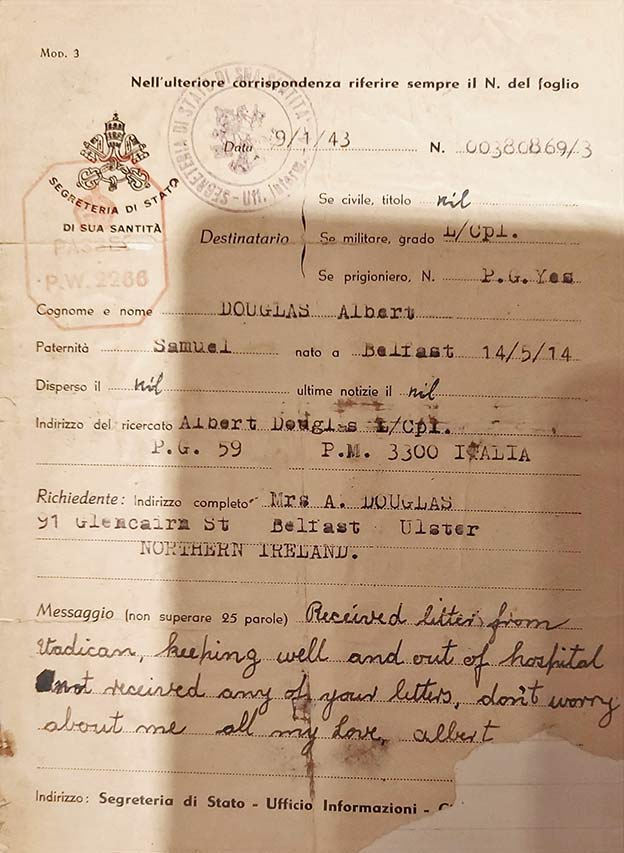 Mod. 3
Nell'ulteriore corrispondenza riferire sempre il N. del foglio
SEGRETERIA DI STATO DI SUA SANTITÀ - Uff. Inform.
Data 9/1/43 N. 00380869/3
SEGRETERIA DI STATO
DI SUA SANTITÀ
PASSED
P.W. 2266
Destinatario
Se civile, titolo nil
Se militare, grado L/Cpl.
Se prigioniero, N. P.G. Yes
Cognome e nome DOUGLAS Albert
Paternità Samuel nato a Belfast 14/5/14
Disperso il nil ultime notizie il nil
Indirizzo del ricercato Albert Douglas L/Cpl.
P.G. 59 P.M. 3300 ITALIA
Richiedente: Indirizzo completo Mrs A. DOUGLAS
91 Glencairn St Belfast Ulster
NORTHERN IRELAND.
Messaggio (non superare 25 parole) Received litter from
Vadican, keeping well and out of hospital
not received any of your letters, don't worry
about me all my love, albert
Indirizzo: Segreteria di Stato - Ufficio Informazioni -